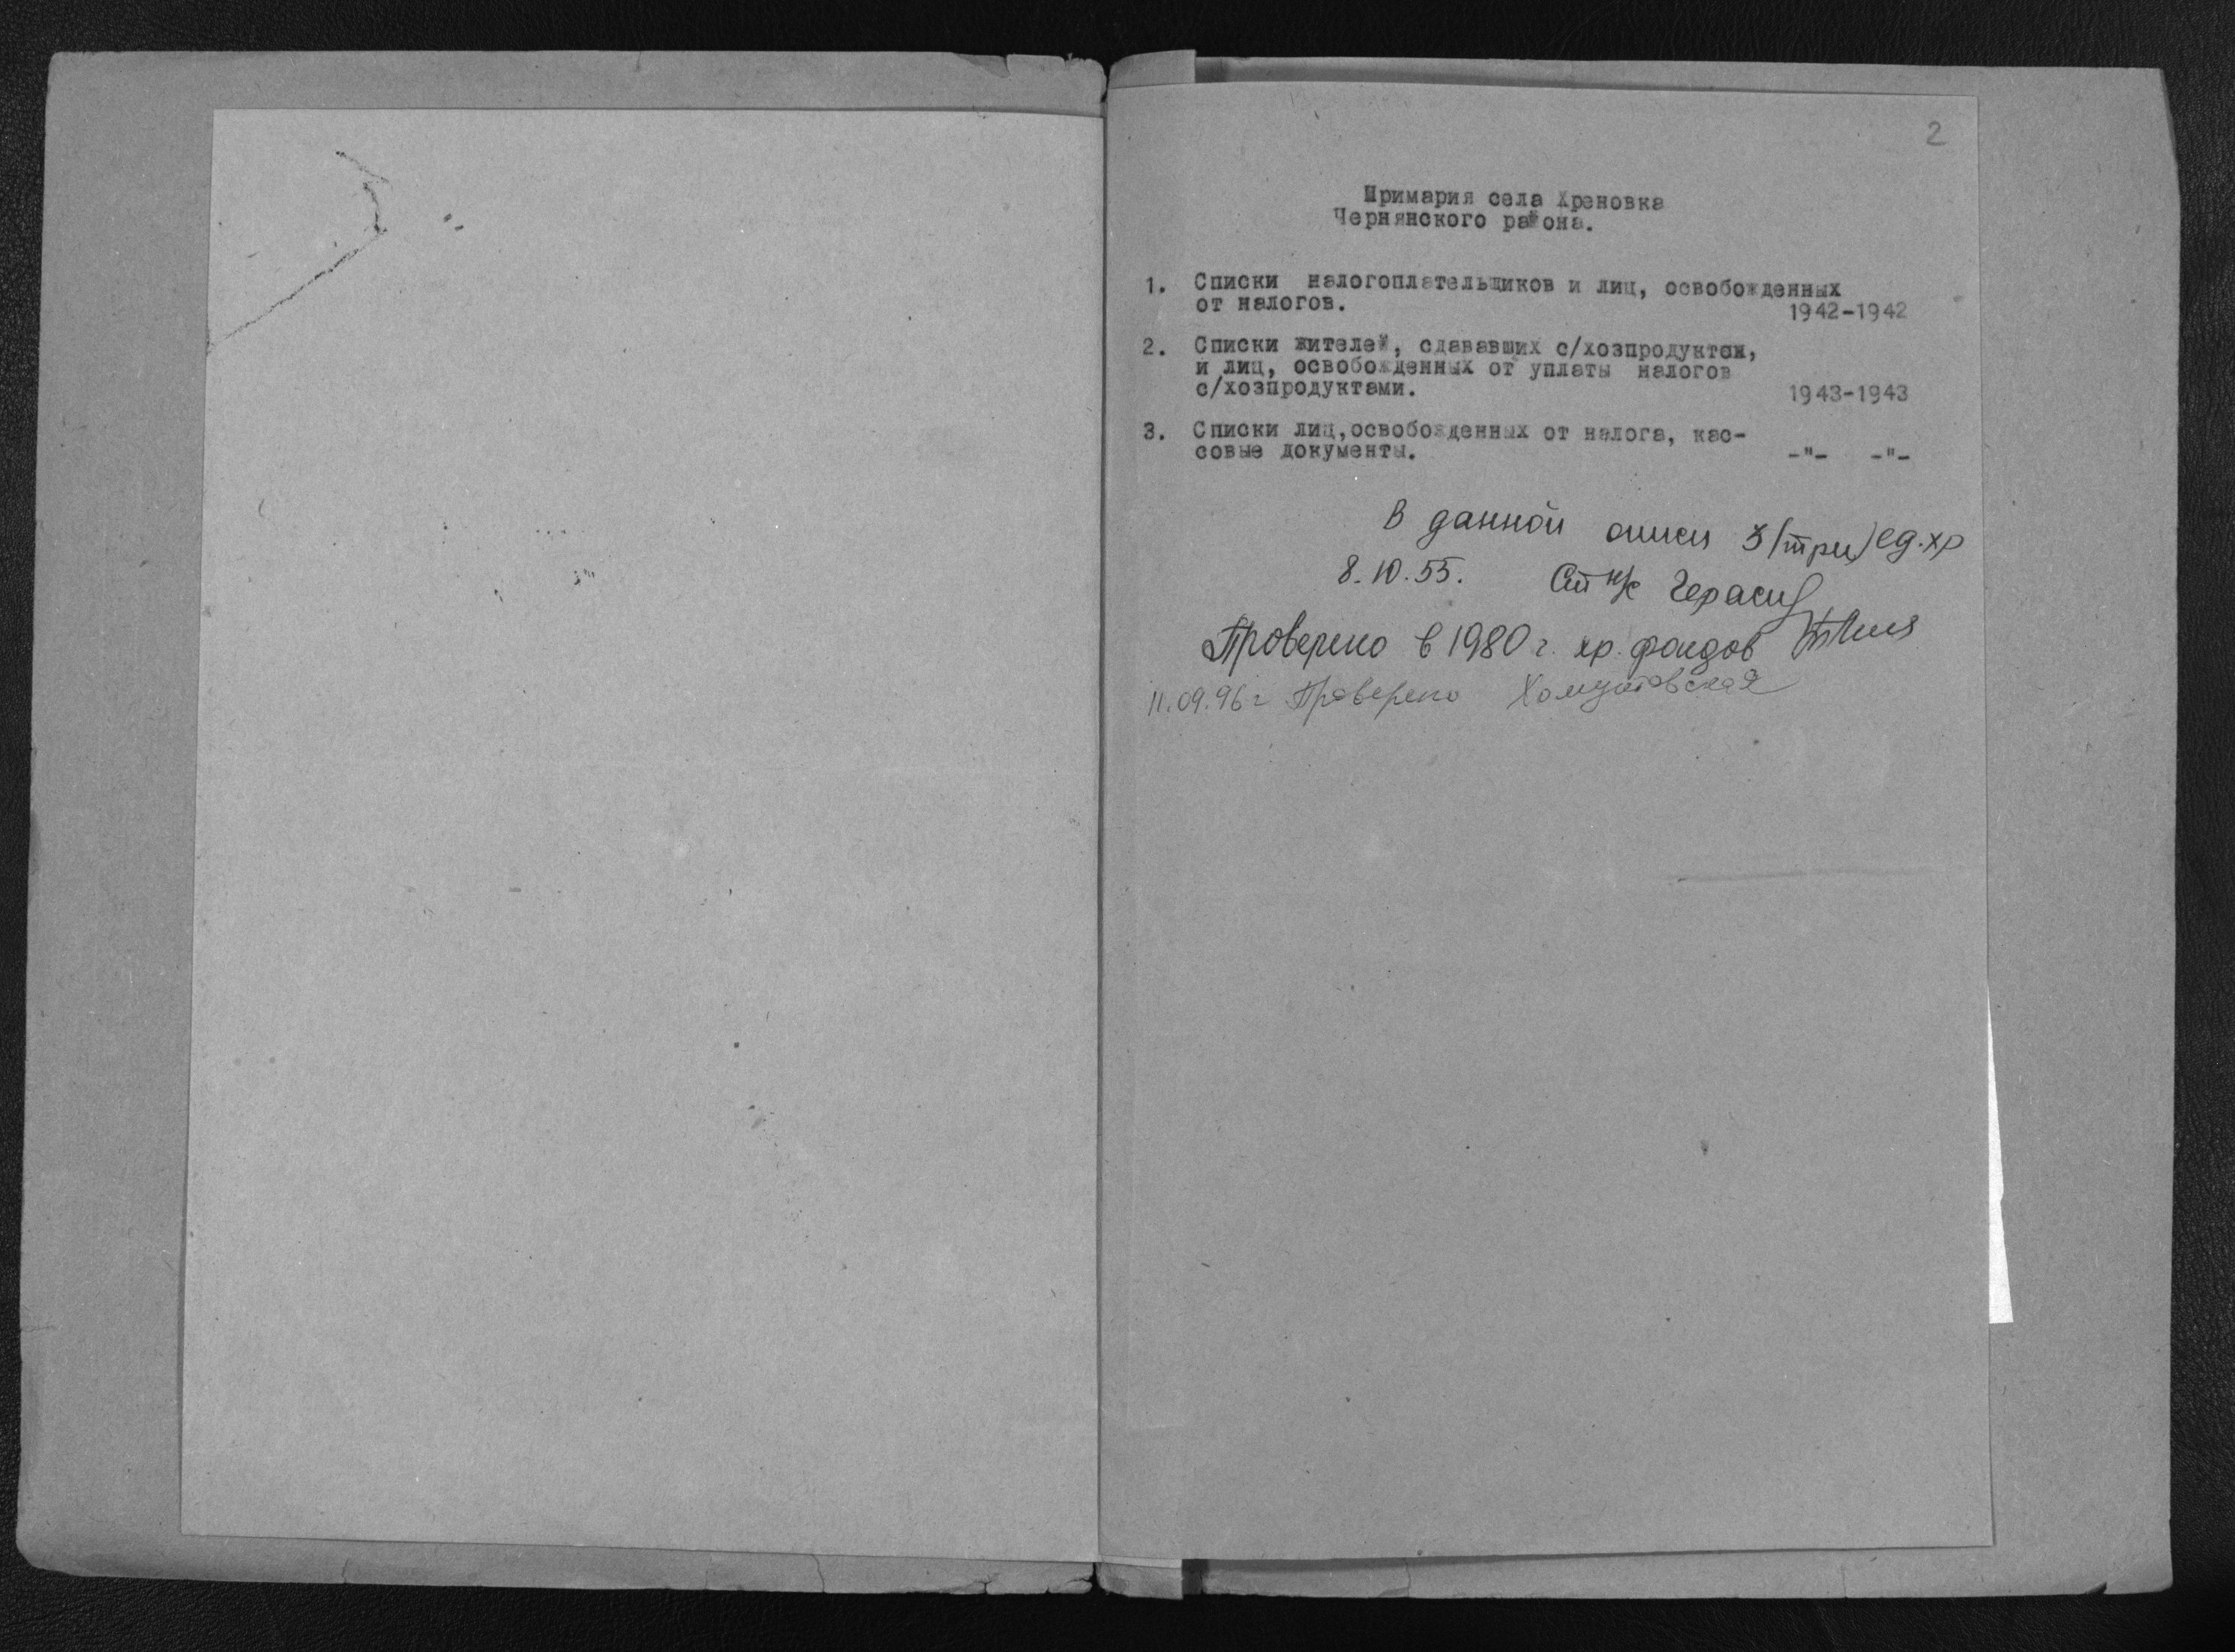 2
Примария села Хреновка
Чернянского района.
1. Списки налогоплательщиков и лиц, освобожденных
от налогов. 1942-1942
2. Списки жителей, сдававших с/хозпродуктои,
и лиц, освобожденных от уплаты налогов
с/хозпродуктами. 1943-1943
3. Списки лиц,освобожденных от налога, кас-
совые документы. -"- -"-
В данной описи 3 (три) ед. хр
8.10.55. Ст н/с
Проверено в 1980 г. хр. фондов
11.09.96 г Проверено Хомутовская